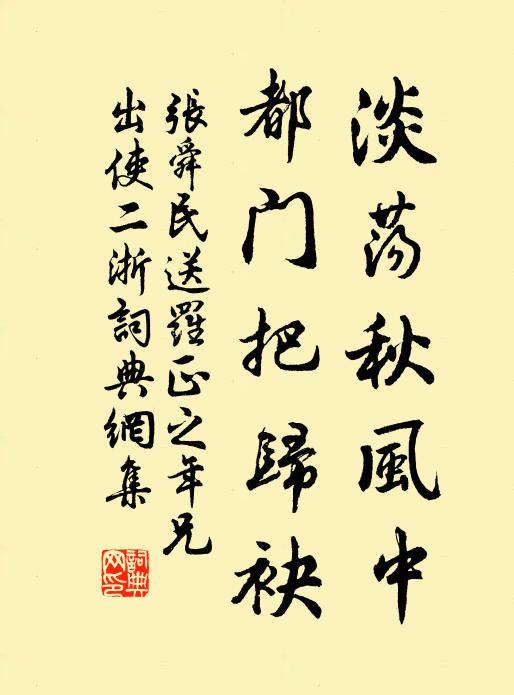 淡蕩秋風中
都門把歸袂
張舜民送羅正之年兄
出使二浙詞典網集
詞典網印